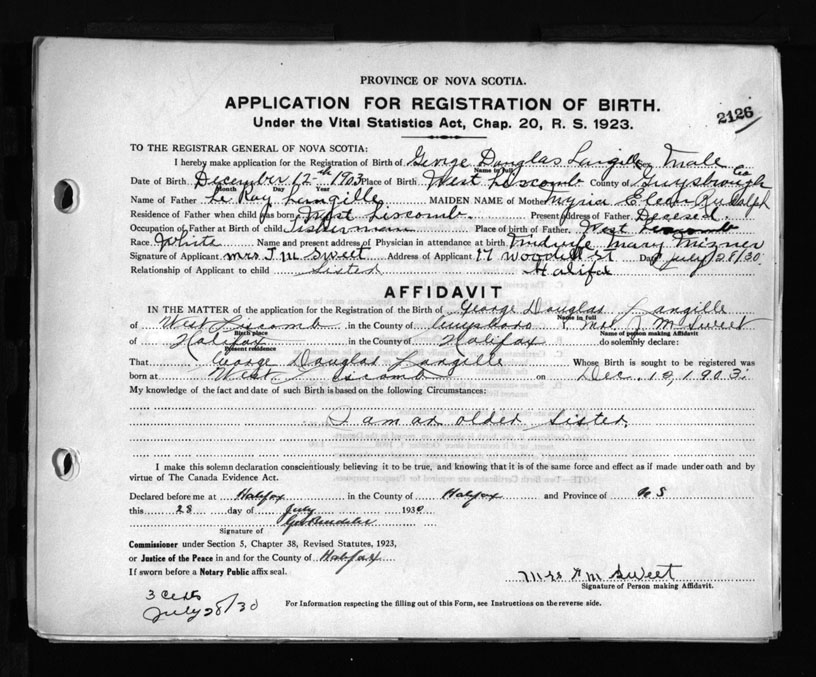 PROVINCE OF NOVA SCOTIA.
APPLICATION FOR REGISTRATION OF BIRTH.
2126
Under the Vital Statistics Act, Chap. 20, R. S. 1923.
TO THE REGISTRAR GENERAL OF NOVA SCOTIA:
I hereby make application for the Registration of Birth of George Douglas Langille Male
Name in full
Date of Birth December 12th 1903 Place of Birth West Liscomb County of Guysbrough Co
Month Day Year
Name of Father Le Roy Langille MAIDEN NAME of Mother Myria Rudolph
Residence of Father when child was born West Liscomb. Present address of Father Decesed.
Occupation of Father at Birth of child Fisherman Place of birth of Father West Liscomb
Race White Name and present address of Physician in attendance at birth Midwife Mary Mizner
Signature of Applicant Mrs J M Sweet Address of Applicant 17 St Date July 28/30.
Relationship of Applicant to child Sister Halifax
AFFIDAVIT
IN THE MATTER of the application for the Registration of the Birth of George Douglas Langille
Name in full
of West Liscomb in the County of Guysboro I, Mrs M Sweet
Birth place Name of person making Affidavit
of Halifax in the County of Halifax do solemnly declare:
Present residence
That George Douglas Langille Whose Birth is sought to be registered was
born at West Liscomb on Dec. 12, 1903.
My knowledge of the fact and date of such Birth is based on the following Circumstances:
I am an older sister.
I make this solemn declaration conscientiously believing it to be true, and knowing that it is of the same force and effect as if made under oath and by
virtue of The Canada Evidence Act.
Declared before me at Halifax in the County of Halifax and Province of N S
this 28 day of July 1930
Signature of
Commissioner under Section 5, Chapter 38, Revised Statutes, 1923,
or Justice of the Peace in and for the County of Halifax
If sworn before a Notary Public affix seal.
Mrs M Sweet
Signature of Person making Affidavit.
3 Certs
July 28/30
For Information respecting the filling out of this Form, see Instructions on the reverse side.